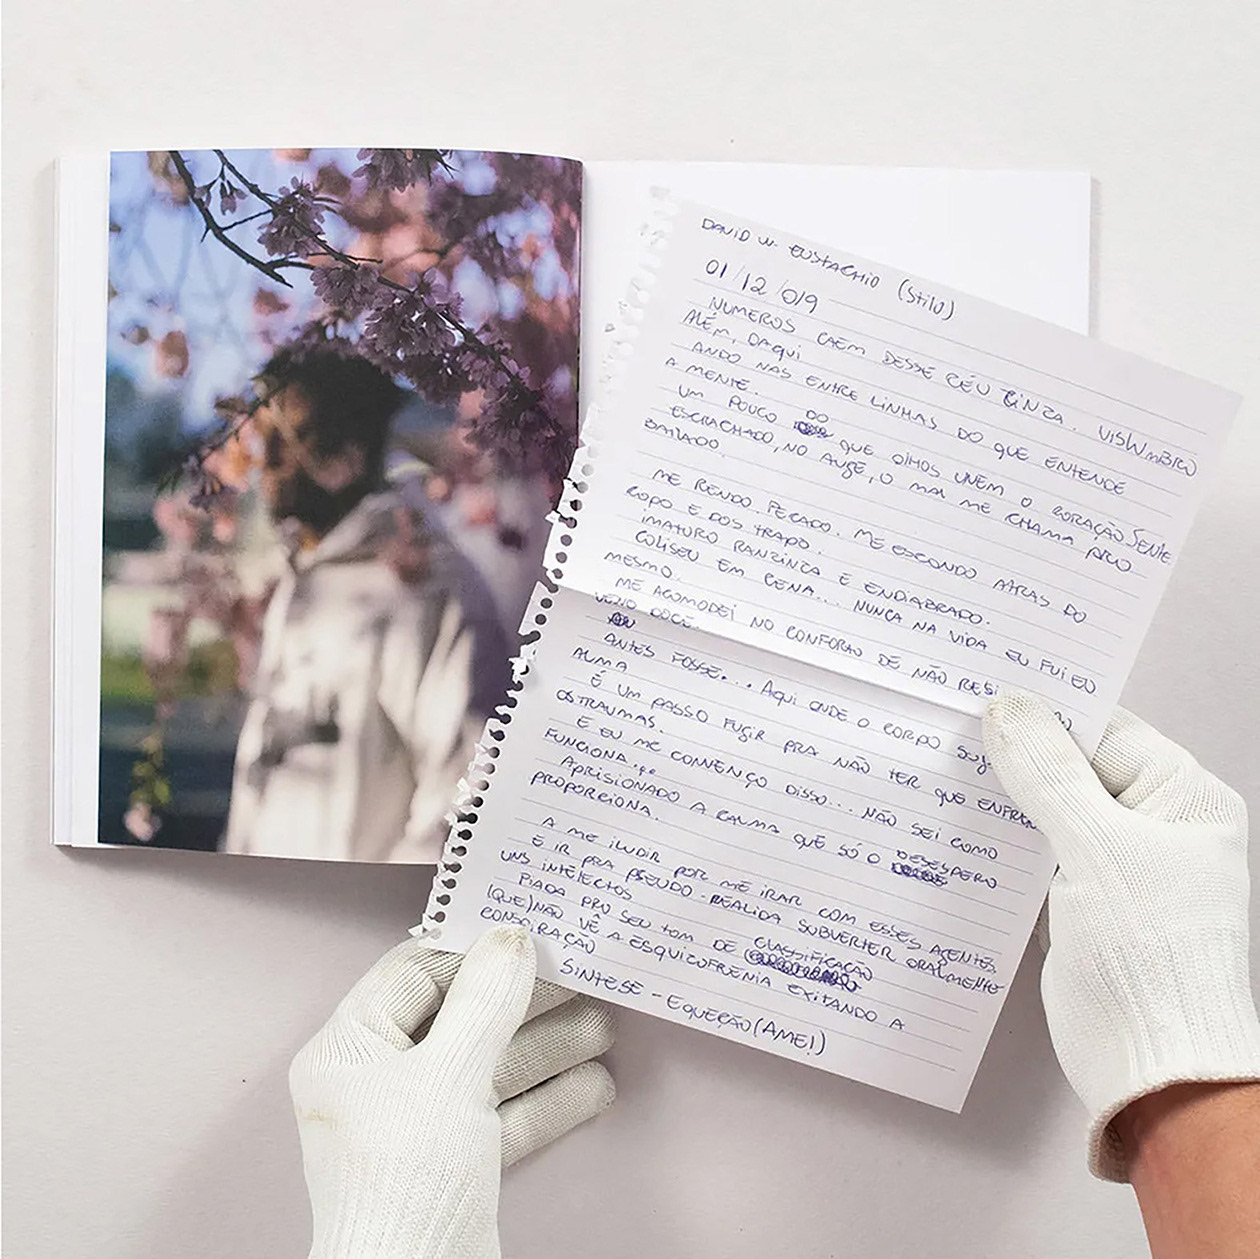 DAVID W. EUSTACHIO (Stilo)
01/12/019
NUMEROS CAEM DESSE CÉU CINZA. VISLUMBRO
ALÉM, DAQUI
ANDO NAS ENTRE LINHAS DO QUE ENTENDE
A MENTE.
UM POUCO DO QUE OLHOS VEEM O CORAÇÃO SENTE
ESCRACHADO, NO AUGE, O MAL ME CHAMA PRO
BAILADO.
ME RENDO PECADO. ME ESCONDO ATRAS DO
COPO E DOS TRAPO.
IMATURO RANZINZA E ENDIABRADO.
COLISEU EM CENA... NUNCA NA VIDA EU FUI EU
MESMO.
ME ACOMODEI NO CONFORTO DE NÃO
ANTES FOSSE... AQUI ONDE O CORPO
ALMA
É UM PASSO FUGIR PRA NÃO TER QUE
OS TRAUMAS.
E EU ME CONVENÇO DISSO... NÃO SEI COMO
FUNCIONA...
APRISIONADO A CALMA QUE SÓ O DESESPERO
PROPORCIONA.
A ME ILUDIR POR ME IRAR COM ESSES AGENTES,
E IR PRA PSEUDO-REALIDA SUBVERTER ORALMENTE
UNS INTELECTOS
PIADA PRO SEU TOM DE CLASSIFICAÇÃO
(QUE) NÃO VÊ A ESQUIZOFRENIA EXITANDO A
CONSPIRAÇÃO
SINTESE - EQUEÇÃO (AMEI)